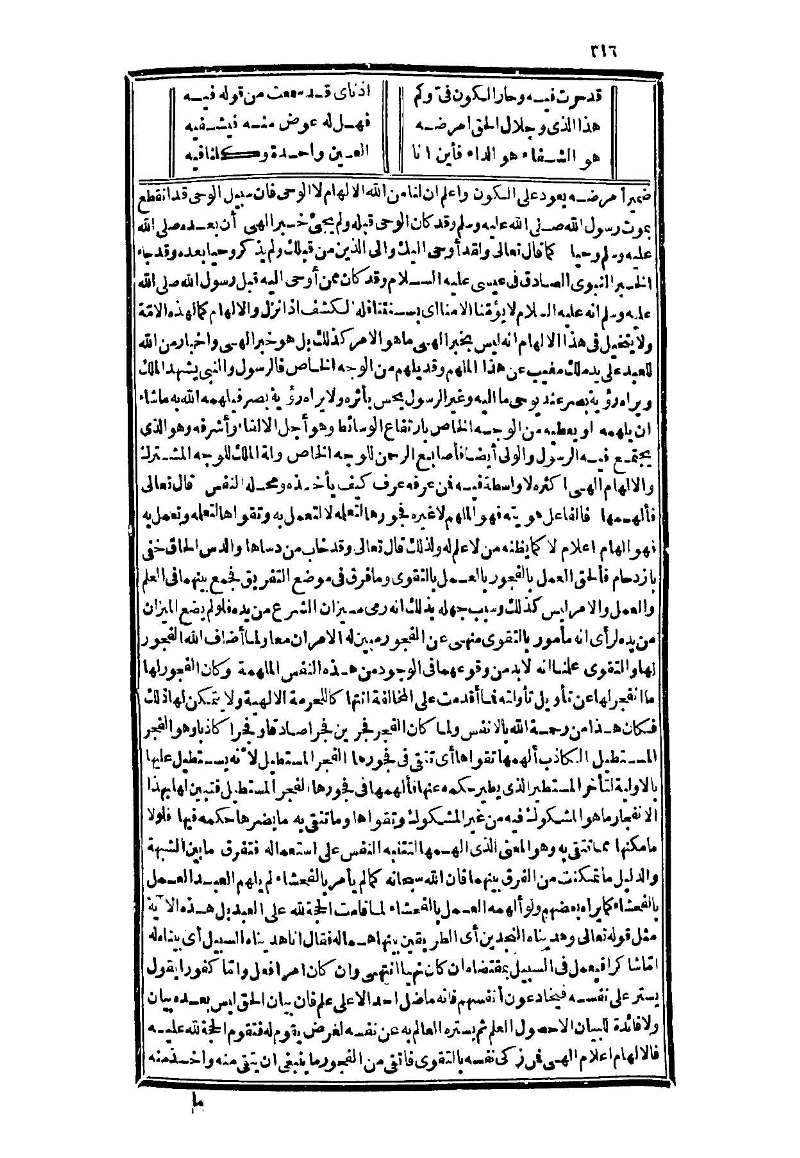 ٣١٦
قد حرت فيه وحار الكون في وكم اذناى قد سمعت من قوله فيه
هذا الذى وجلال الحق امرضه فهل له عوض منه فيشفيه
هو الشفاء هو الداء فأين انا العين واحدة وكلنا فيه
ضمير أمرضه يعود على الكون واعلم ان لنا من الله الالهام لا الوحى فان سبيل الوحى قد انقطع
بموت رسول الله صلى الله عليه وسلم وقد كان الوحى قبله ولم يجئ خبر الهى أن بعده صلى الله
عليه وسلم وحيا كما قال تعالى ولقد أوحى اليك والى الذين من قبلك ولم يذكر وحيا بعده وقد جاء
الخبر النبوى الصادق فى عيسى عليه السلام وقد كان ممن أوحى اليه قبل رسول الله صلى الله
عليه وسلم انه عليه السلام لا يؤمنا الا منا اى بسنتنا فله الكشف اذا نزل والالهام كما لهذه الامة
ولا يتخيل فى هذا الالهام انه ليس بخبر الهى ما هو الامر كذلك بل هو خبر الهى واخبار من الله
للعبد على يد ملك مغيب عن هذا الملهم وقد يلهم من الوجه الخاص فالرسول والنبى يشهد الملك
ويراه رؤية بصر عند يوحى ما اليه وغير الرسول يحس بأثره ولا يراه رؤية بصر فيلهمه الله به ما شاء
ان يلهمه او يعطيه من الوجه الخاص بارتفاع الوسائط وهو أجل الالقاء وأشرفه وهو الذى
يجتمع فيه الرسول والولى أيضا فأصابع الرحمن للوجه الخاص ولمة الملك للوجه المشترك
والالهام الهى اكثره لا واسطة فيه فمن عرفه عرف كيف يأخذه ومحله النفس قال تعالى
فألهمها فالفاعل هويته فهو الملهم لا غيره فجورها لتعلمه لا لتعمل به وتقواها لتعلمه وتعمل به
فهو الهام اعلام لا كما يظنه من لا علم له ولذلك قال تعالى وقد خاب من دساها والدس الحاق خفى
بازدحام فألحق العمل بالفجور بالعمل بالتقوى وما فرق فى موضع التفريق فجمع بينهما فى العلم
والعمل والامر ليس كذلك وسبب جهله بذلك انه رمى ميزان الشرع من يده فلو لم يضع الميزان
من يده لرأى انه مأمور بالتقوى منهى عن الفجور مبين له الامران معا ولما أضاف الله الفجور
لها والتقوى علمنا انه لا بد من وقوعهما فى الوجود من هذه النفس الملهمة وكان الفجور لها
ما انفجر لها عن تأويل تأولته فما أقدمت على المخالفة انتهاكا للحرمة الالهية ولا يتمكن لها ذلك
فكان هذا من رحمة الله بالانفس ولما كان الفجر فجرين فجرا صادقا وفجرا كاذبا وهو الفجر
المستطيل الكاذب ألهمها تقواها أى تتقى فى فجورها الفجر المستطيل لانه يستطيل عليها
بالاولية لتأخر المستطير الذى يطير حكمه عنها فألهمها فى فجورها الفجر المستطيل فتبين لها بهذا
الانفجار ما هو المشكوك فيه من غير المشكوك وتقواها وما تتقى به ما يضرها حكمه فيها فلولا
ما مكنها مما تتقى به وهو المعنى الذى الهمها لتتنبه النفس على استعماله فتفرق ما بين الشبهة
والدليل ما تمكنت من الفرق بينهما فان الله سبحانه كما لم يأمر بالفحشاء لم يلهم العبد العمل
بالفحشاء كما يراه بعضهم ولو ألهمه العمل بالفحشاء لما قامت الحجة لله على العبد بل هذه الآية
مثل قوله تعالى وهديناه النجدين أى الطريقين بيناهما له فقال انا هديناه السبيل أى بيناه له
اما شاكرا فيعمل فى السبيل بمقتضاه ان كان نهيا انتهى وان كان امرا فعل واما كفورا يقول
يستر على نفسه فيخادعون أنفسهم فانه ما ضل احد الا على علم فان بيان الحق ليس بعده بيان
ولا فائدة للبيان الا حصول العلم ثم يستره العالم به عن نفسه لغرض يقوم له فتقوم الحجة لله عليه
فالالهام اعلام الهى فمن زكى نفسه بالتقوى فاتقى من الفجور ما ينبغى ان يتقى منه واخذ منه
ما